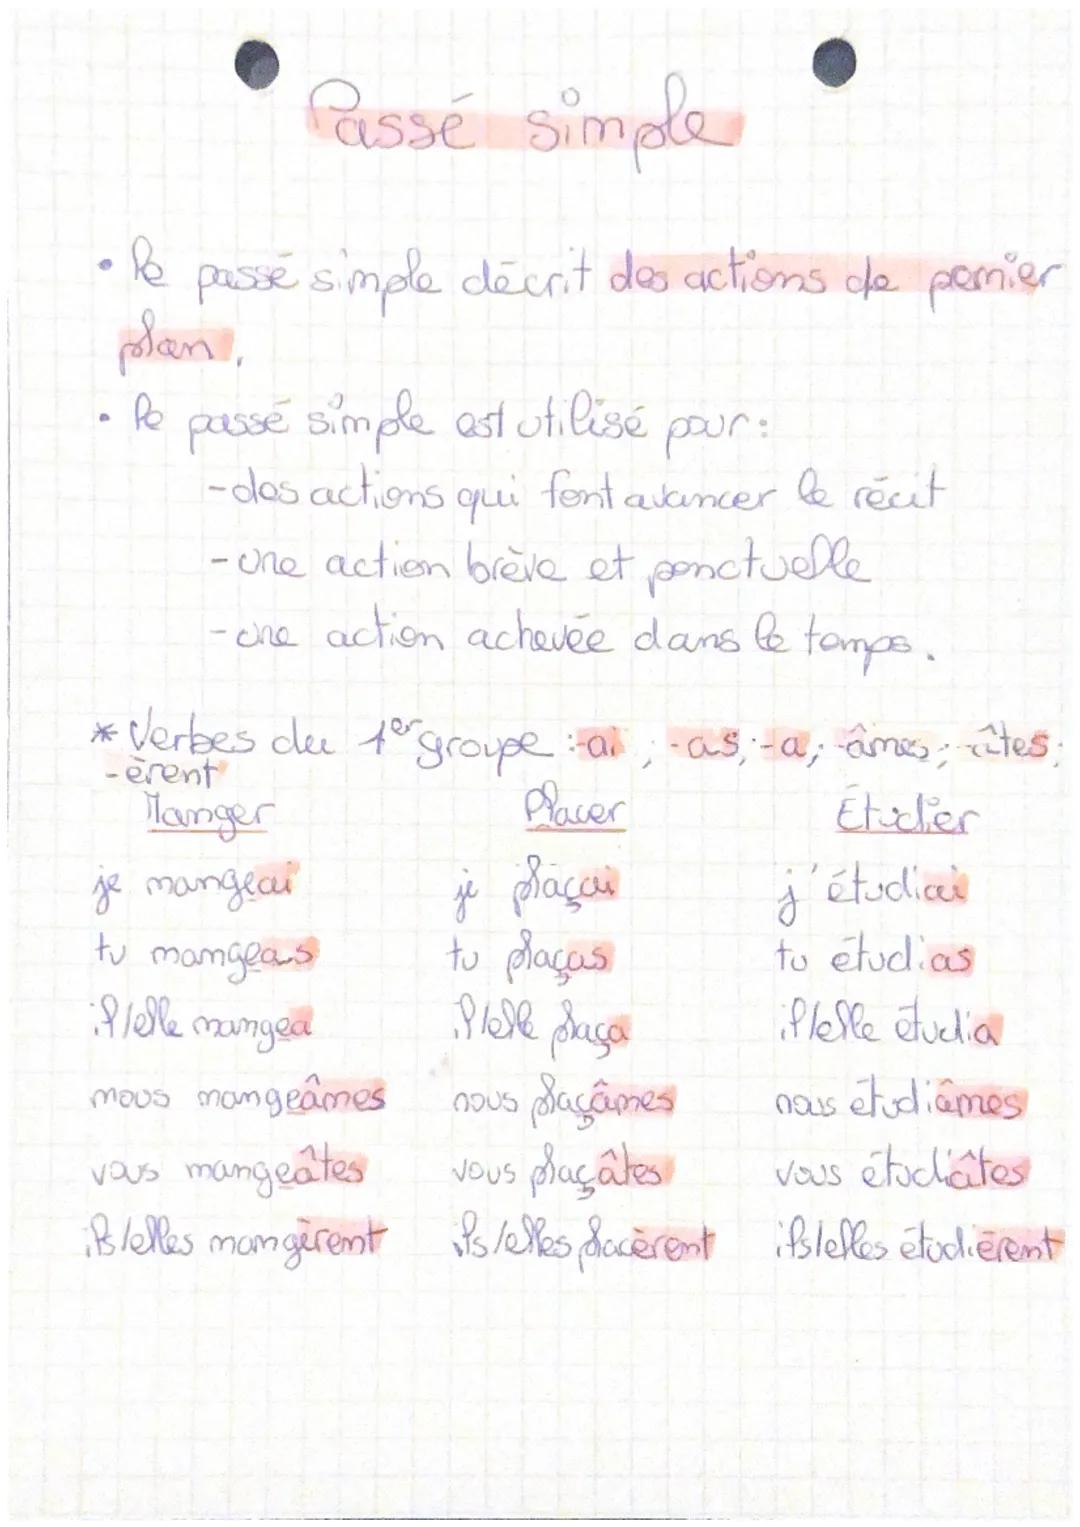 Passé simple
• Le passé simple décrit des actions de pemier
plan.
• Le passé simple est utilisé pour:
-des actions qui font avancer le récit
-une action brève et ponctuelle
-une action achevée dans le temps.
* Verbes du 1er groupe :-ai ; -as; -a; -âmes; -âtes;
-èrent
Manger Placer Étudier
je mangeai je plaçai j'étudiai
tu mangeas tu plaças tu étudias
il/elle mangea il/elle plaça il/elle étudia
nous mangeâmes nous plaçâmes nous étudiâmes
vous mangeâtes vous plaçâtes vous étudiâtes
ils/elles mangèrent ils/elles placèrent ils/elles étudièrent